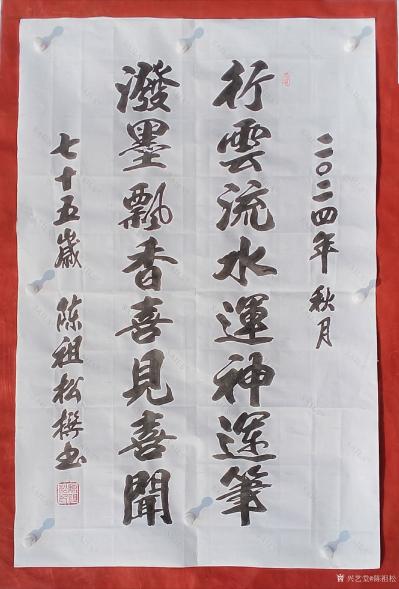 二〇二四年 秋月
行雲流水運神運筆
潑墨飄香喜見喜聞
七十五歲 陳祖松撰書
兴艺堂@陈祖松